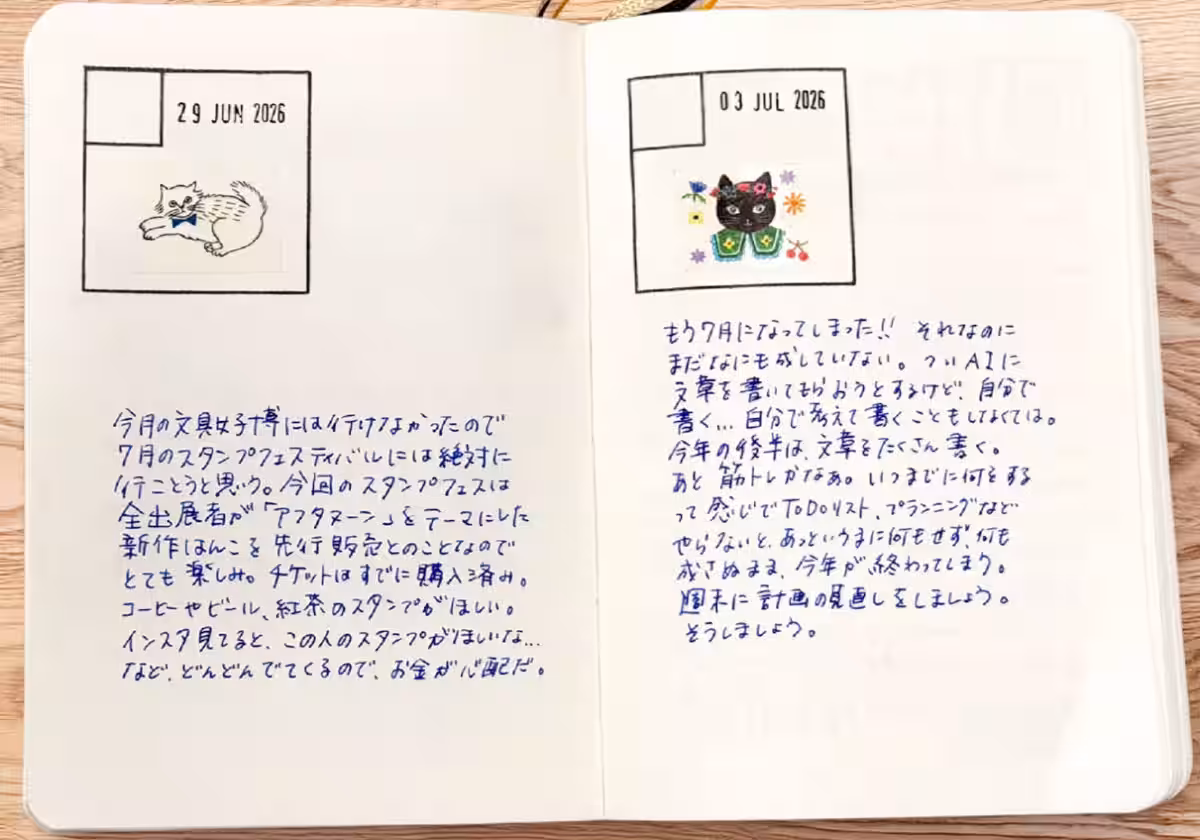 29 JUN 2026
今月の文具女子博には行けなかったので
7月のスタンプフェスティバルには絶対に
行こうと思う。今回のスタンプフェスは
全出展者が「アフタヌーン」をテーマにした
新作はんこを先行販売とのことなので
とても楽しみ。チケットはすでに購入済み。
コーヒーやビール、紅茶のスタンプがほしい。
インスタ見てると、この人のスタンプがほしいな…
など、どんどんでてくるので、お金が心配だ。
03 JUL 2026
もう7月になってしまった!! それなのに
まだなにも成していない。ついAIに
文章を書いてもらおうとするけど、自分で
書く…自分で考えて書くこともしなくては。
今年の後半は、文章をたくさん書く。
あと筋トレかなぁ。いつまでに何をする
って感じでToDoリスト、プランニングなど
やらないと、あっというまに何もせず、何も
成さぬまま、今年が終わってしまう。
週末に計画の見直しをしましょう。
そうしましょう。